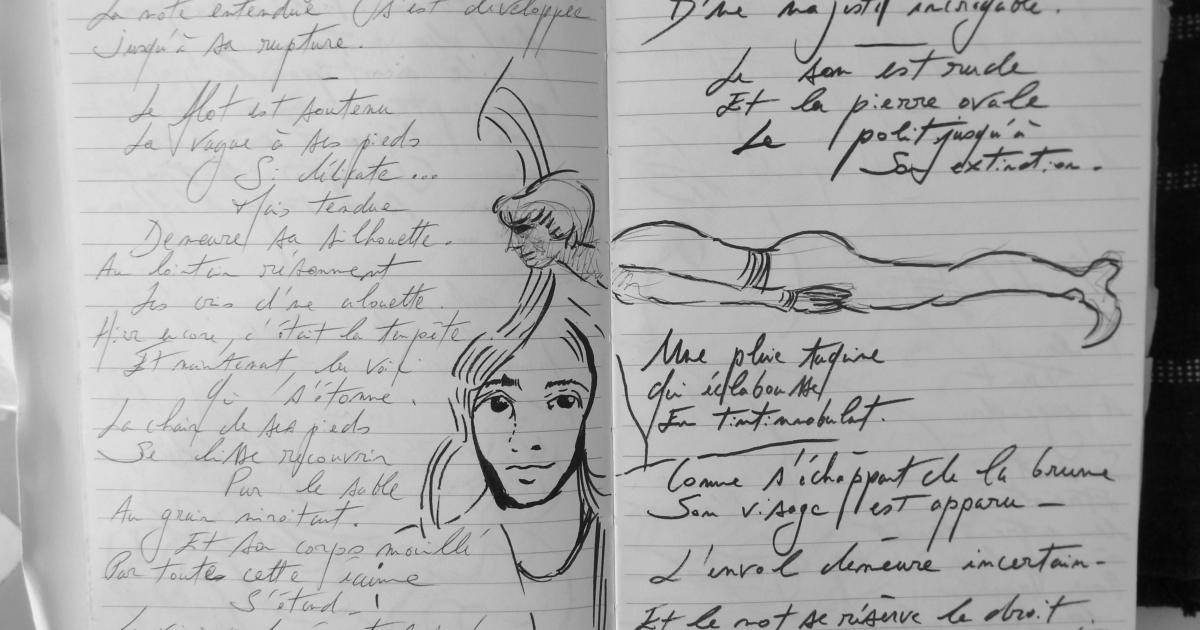 La note entendue s'est développée
jusqu'à sa rupture.
Le flot est soutenu
La vague à ses pieds
Si délicate ...
Mais tendue
Demeure sa silhouette.
Au lointain résonnent
Les cris d'une alouette.
Hier encore, c'était la tempête
Et maintenant, la voix
Qui s'étonne.
La chair de ses pieds
Se lisse recouvrir
Par le sable
Au grain miroitant.
Et son corps mouillé
Par toute cette
S'étend_!
D'une majesté incroyable.
Le son est rude
Et la pierre ovale
Le polit jusqu'à
Son extinction.
Une pluie taquine
Qui éclabousse
En tintinnabulant.
Comme s'échappant de la brume
Son visage est apparu —
L'envol demeure incertain-
Et le mot se réserve le droit